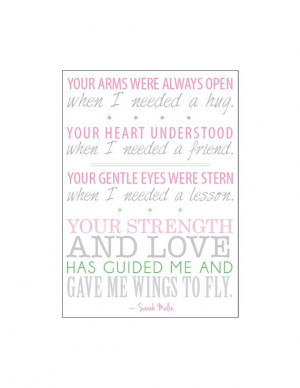 YOUR ARMS WERE ALWAYS OPEN
when I needed a hug.
YOUR HEART UNDERSTOOD
when I needed a friend.
YOUR GENTLE EYES WERE STERN
when I needed a lesson.
YOUR STRENGTH
AND LOVE
HAS GUIDED ME AND
GAVE ME WINGS TO FLY.
— Sarah Malin